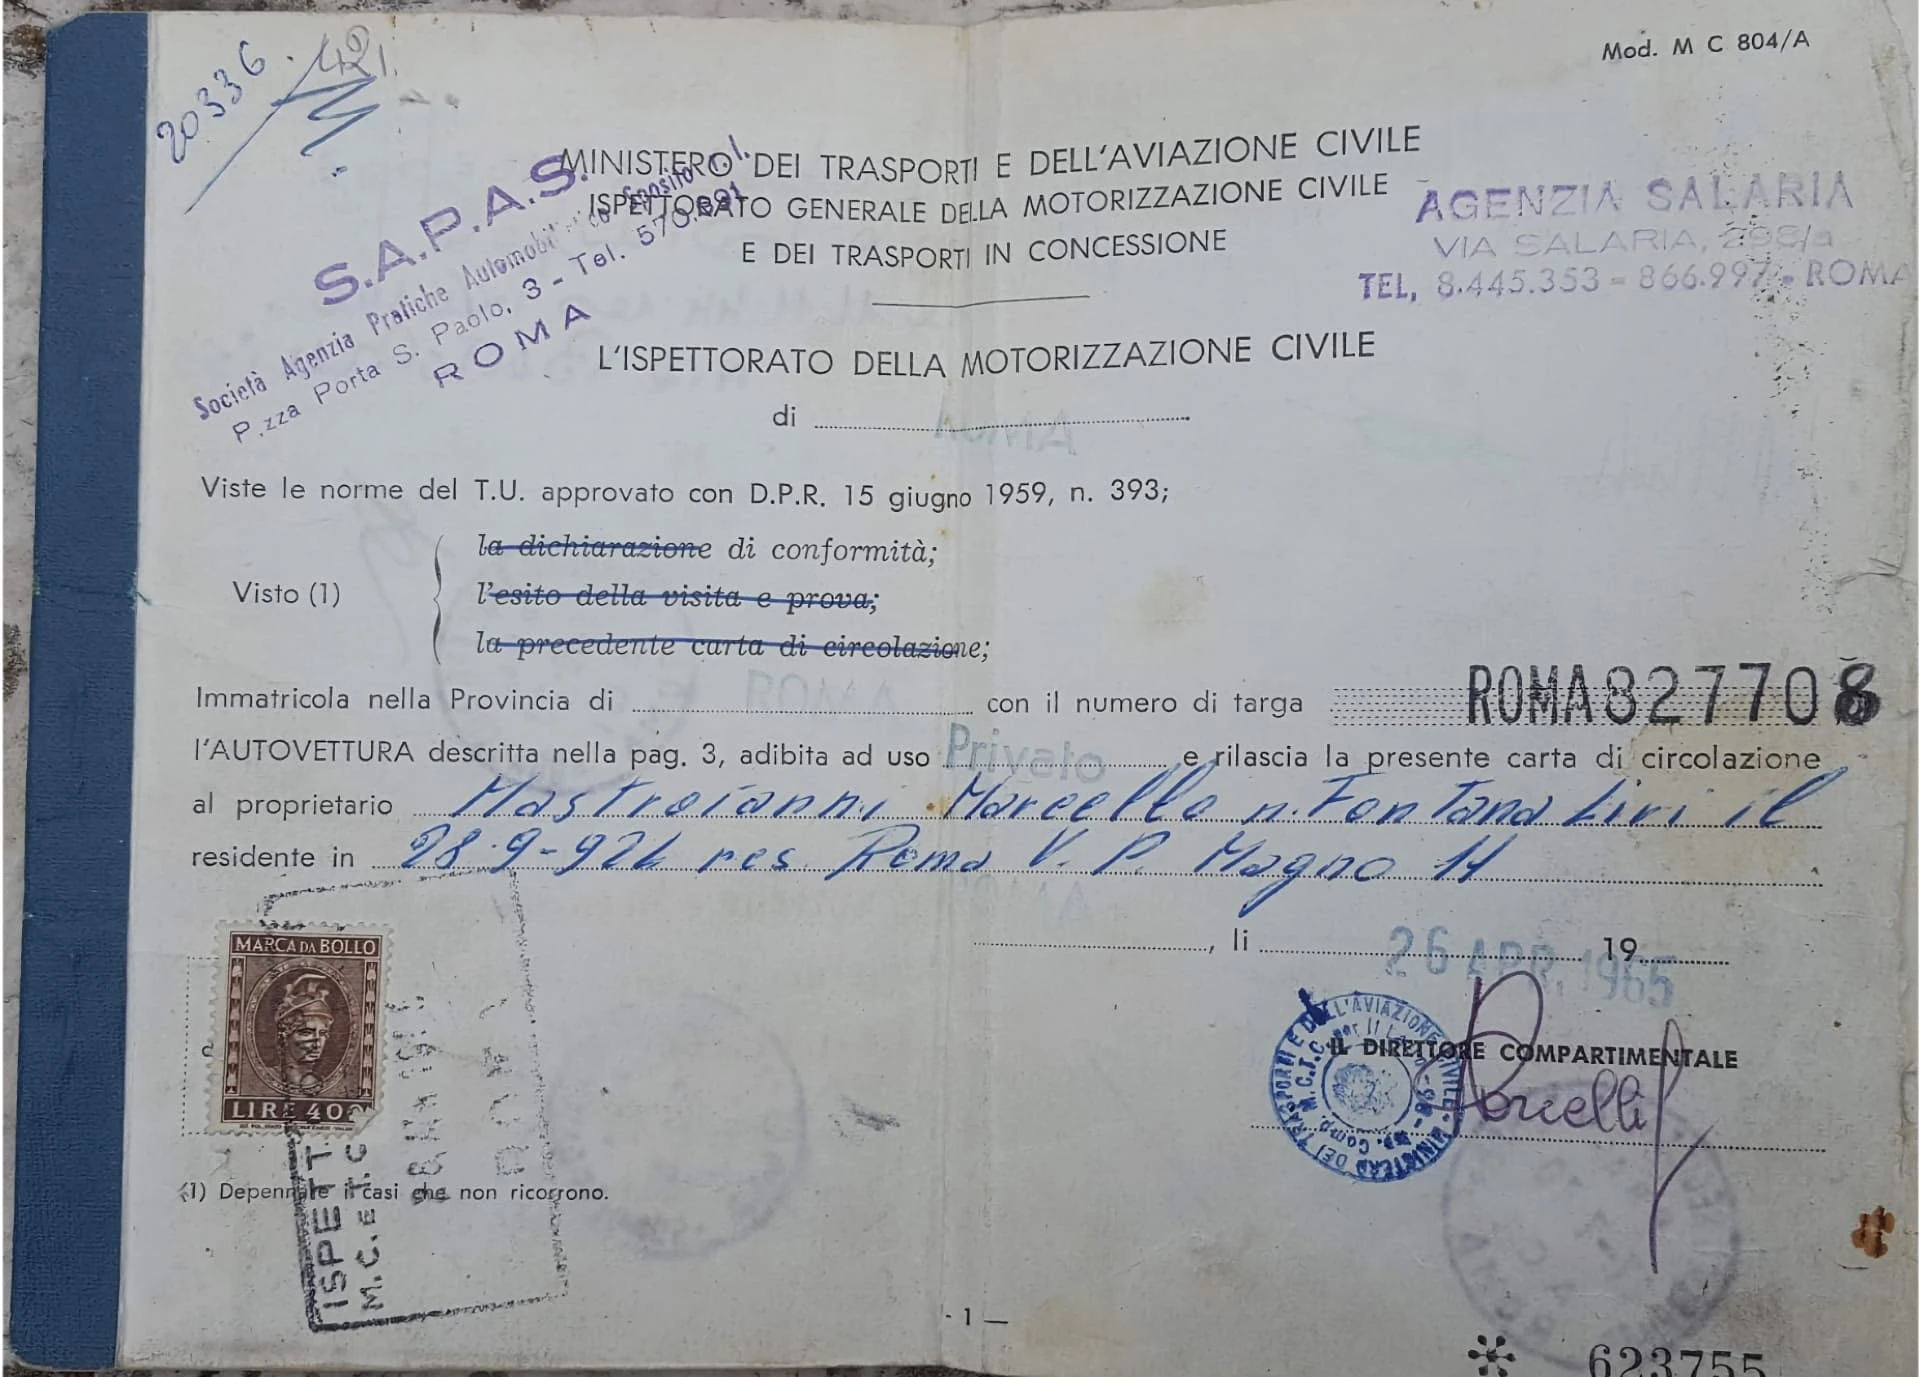 20336
Mod. M C 804/A
MINISTERO DEI TRASPORTI E DELL'AVIAZIONE CIVILE
ISPETTORATO GENERALE DELLA MOTORIZZAZIONE CIVILE
E DEI TRASPORTI IN CONCESSIONE
S.A.P.A.S.
Società Agenzia Pratiche
P.zza Porta S. Paolo, 3 - Tel.
ROMA
AGENZIA SALARIA
VIA SALARIA, 298/a
TEL, 8.445.353 - 866.997 - ROMA
L'ISPETTORATO DELLA MOTORIZZAZIONE CIVILE
di ROMA
Viste le norme del T.U. approvato con D.P.R. 15 giugno 1959, n. 393;
la dichiarazione di conformità;
Visto (1)
l'esito della visita e prova;
la precedente carta di circolazione;
Immatricola nella Provincia di ROMA con il numero di targa ROMA 827708
l'AUTOVETTURA descritta nella pag. 3, adibita ad uso Privato e rilascia la presente carta di circolazione
al proprietario Mastroianni Marcello n. Fontana Liri il
residente in 28-9-924 res. Roma V. P. Magno 11
ROMA, li 26 APR. 1965 19
MARCA DA BOLLO
LIRE 400
IL DIRETTORE COMPARTIMENTALE
ISPETT
M.C. e T.C
(1) Depennare i casi che non ricorrono.
- 1 —
623755